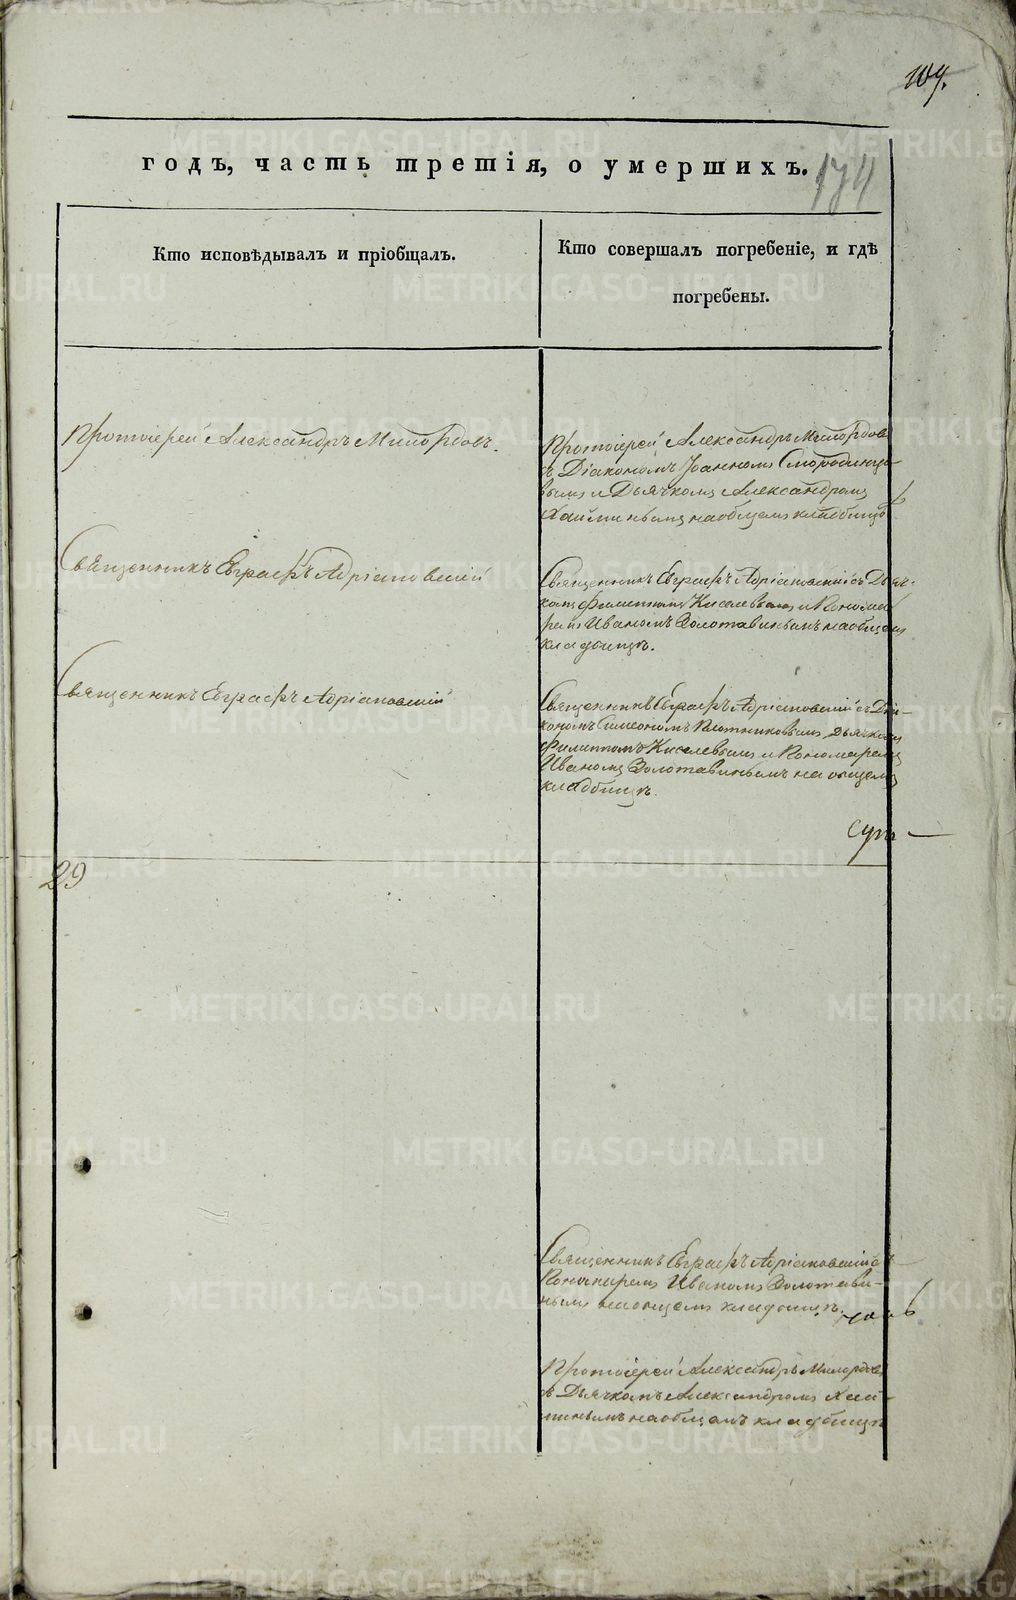 109.
годъ, часть третія, о умершихъ.
174
Кто исповѣдывалъ и пріобщалъ.
Кто совершалъ погребеніе, и гдѣ
погребены.
Протоіерей Александръ Милордовъ.
Протоіерей Александръ Милордовъ
съ Діакономъ Іоанномъ Смородинце-
вымъ и Дьячкомъ Александромъ
на общемъ кладбищѣ
Священникъ Евграфъ Адріановскій
Священникъ Евграфъ Адріановскій съ Дьяч-
комъ Филиппомъ Киселевымъ и Понома-
ремъ Иваномъ Золотавинымъ на общемъ
кладбищѣ.
Священникъ Евграфъ Адріановскій
Священникъ Евграфъ Адріановскій съ Діа-
кономъ Симеономъ Плотниковымъ, Дьячкомъ
Филиппомъ Киселевымъ и Пономаремъ
Иваномъ Золотавинымъ на общемъ
кладбищѣ.
29
Священникъ Евграфъ Адріановскій съ
Пономаремъ Иваномъ Золотави-
нымъ на общемъ кладбищѣ.
Протоіерей Александръ Милордовъ
съ Дьячкомъ Александромъ
на общемъ кладбищѣ
METRIKI.GASO-URAL.RU